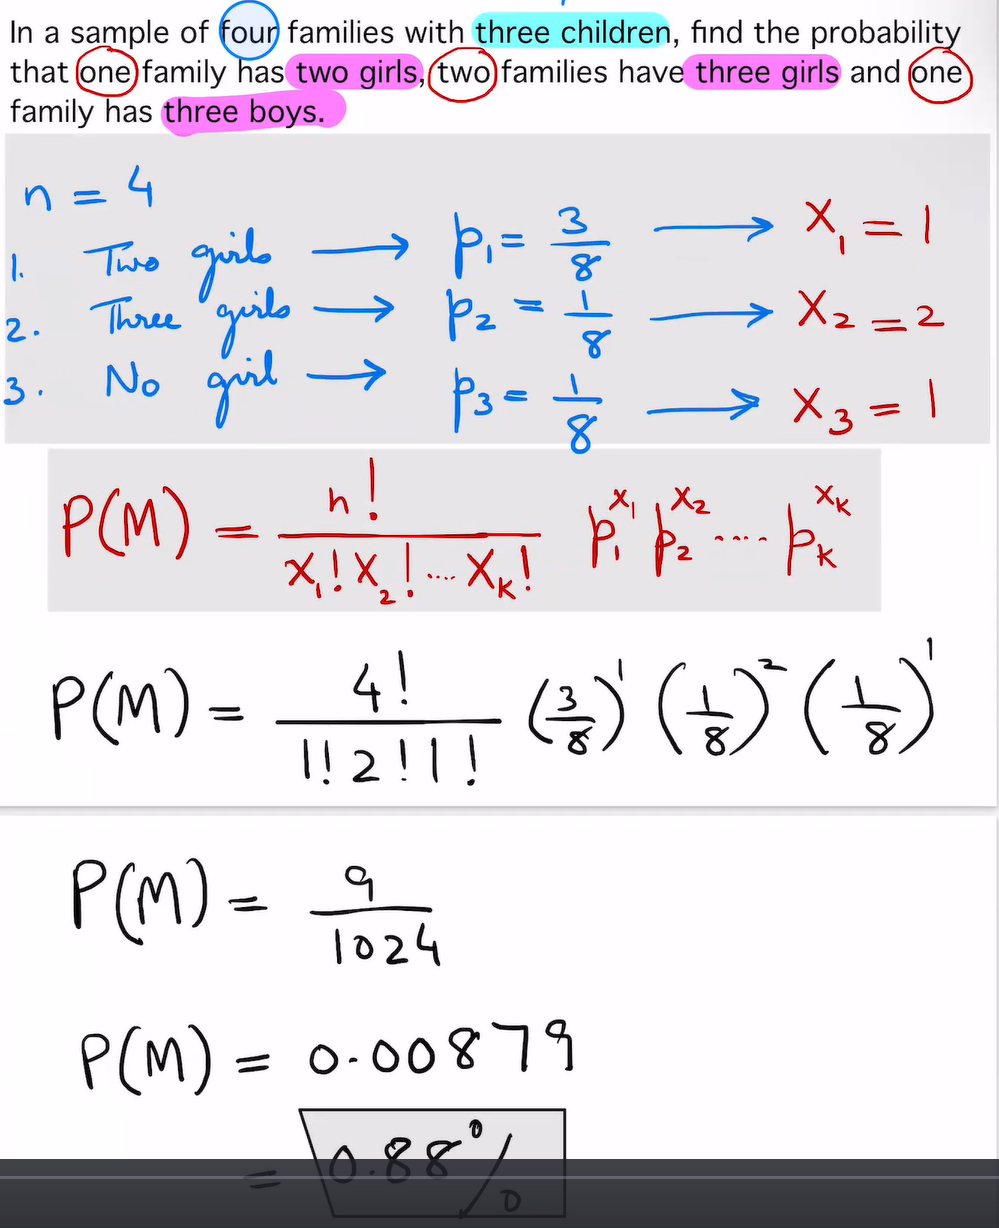 In a sample of four families with three children, find the probability
that one family has two girls, two families have three girls and one
family has three boys.
n = 4
1. Two girls → p₁ = 3/8 → X₁ = 1
2. Three girls → p₂ = 1/8 → X₂ = 2
3. No girl → p₃ = 1/8 → X₃ = 1
P(M) = n! / X₁! X₂! .... Xₖ! p₁^X₁ p₂^X₂ .... pₖ^Xₖ
P(M) = 4! / 1! 2! 1! (3/8)^1 (1/8)^2 (1/8)^1
P(M) = 9/1024
P(M) = 0.00879
= 0.88%